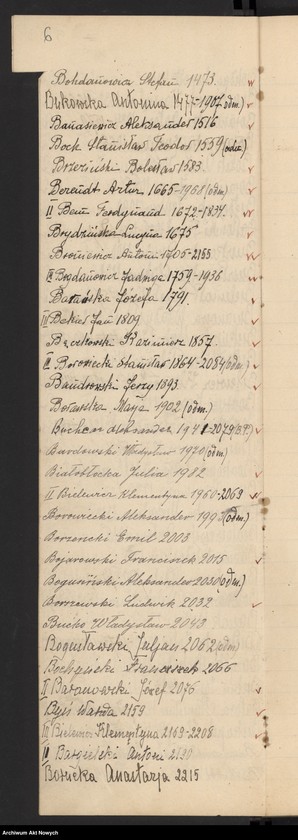 6
Bohdanowicz Stefan 1473
Bukowska Antonina 1477-1907 odm)
Banasiewicz Aleksander 1516
Bock Stanisław Teodor 1559 (odm)
Brzeziński Bolesław 1583
Berendt Artur 1665-1968 (odm)
II Bem Ferdynand 1672-1834
Brydzińska Lucyna 1675
Broniewicz Antoni 1705-2153
Bogdanowicz Jadwiga 1759-1936
Barańska Józefa 1791
III Bekier Jan 1809
Bączkowski Kazimierz 1857
II Borowiecki Stanisław 1864-2084 (odm)
Bandrowski Jerzy 1893
Borawska Maya 1902 (odm.)
Aleksander
Burdowski Władysław 1920 (odm)
Białobłocka Julia 1982
II Bielewicz Klementyna 1960-2069
Borowiecki Aleksander 1993 (odm.)
Borzencki Emil 2003
Bojarowski Franciszek 2015
Bogusiński Aleksander 2030 (odm)
Borzewski Ludwik 2032
Bućko Władysław 2043
Bogusławski Juljan 2062 (odm)
Bochyński Franciszek 2066
II Baranowski Józef 2076
Byś Wanda 2159
III Bielewicz Klementyna 2169-2208
III Antoni 2190
Borucka Anastazja 2215
Archiwum Akt Nowych